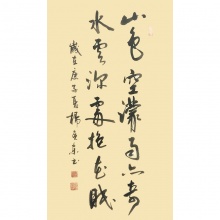 山色空濛雨亦奇
水雲深處抱花眠
歲在庚子夏楊